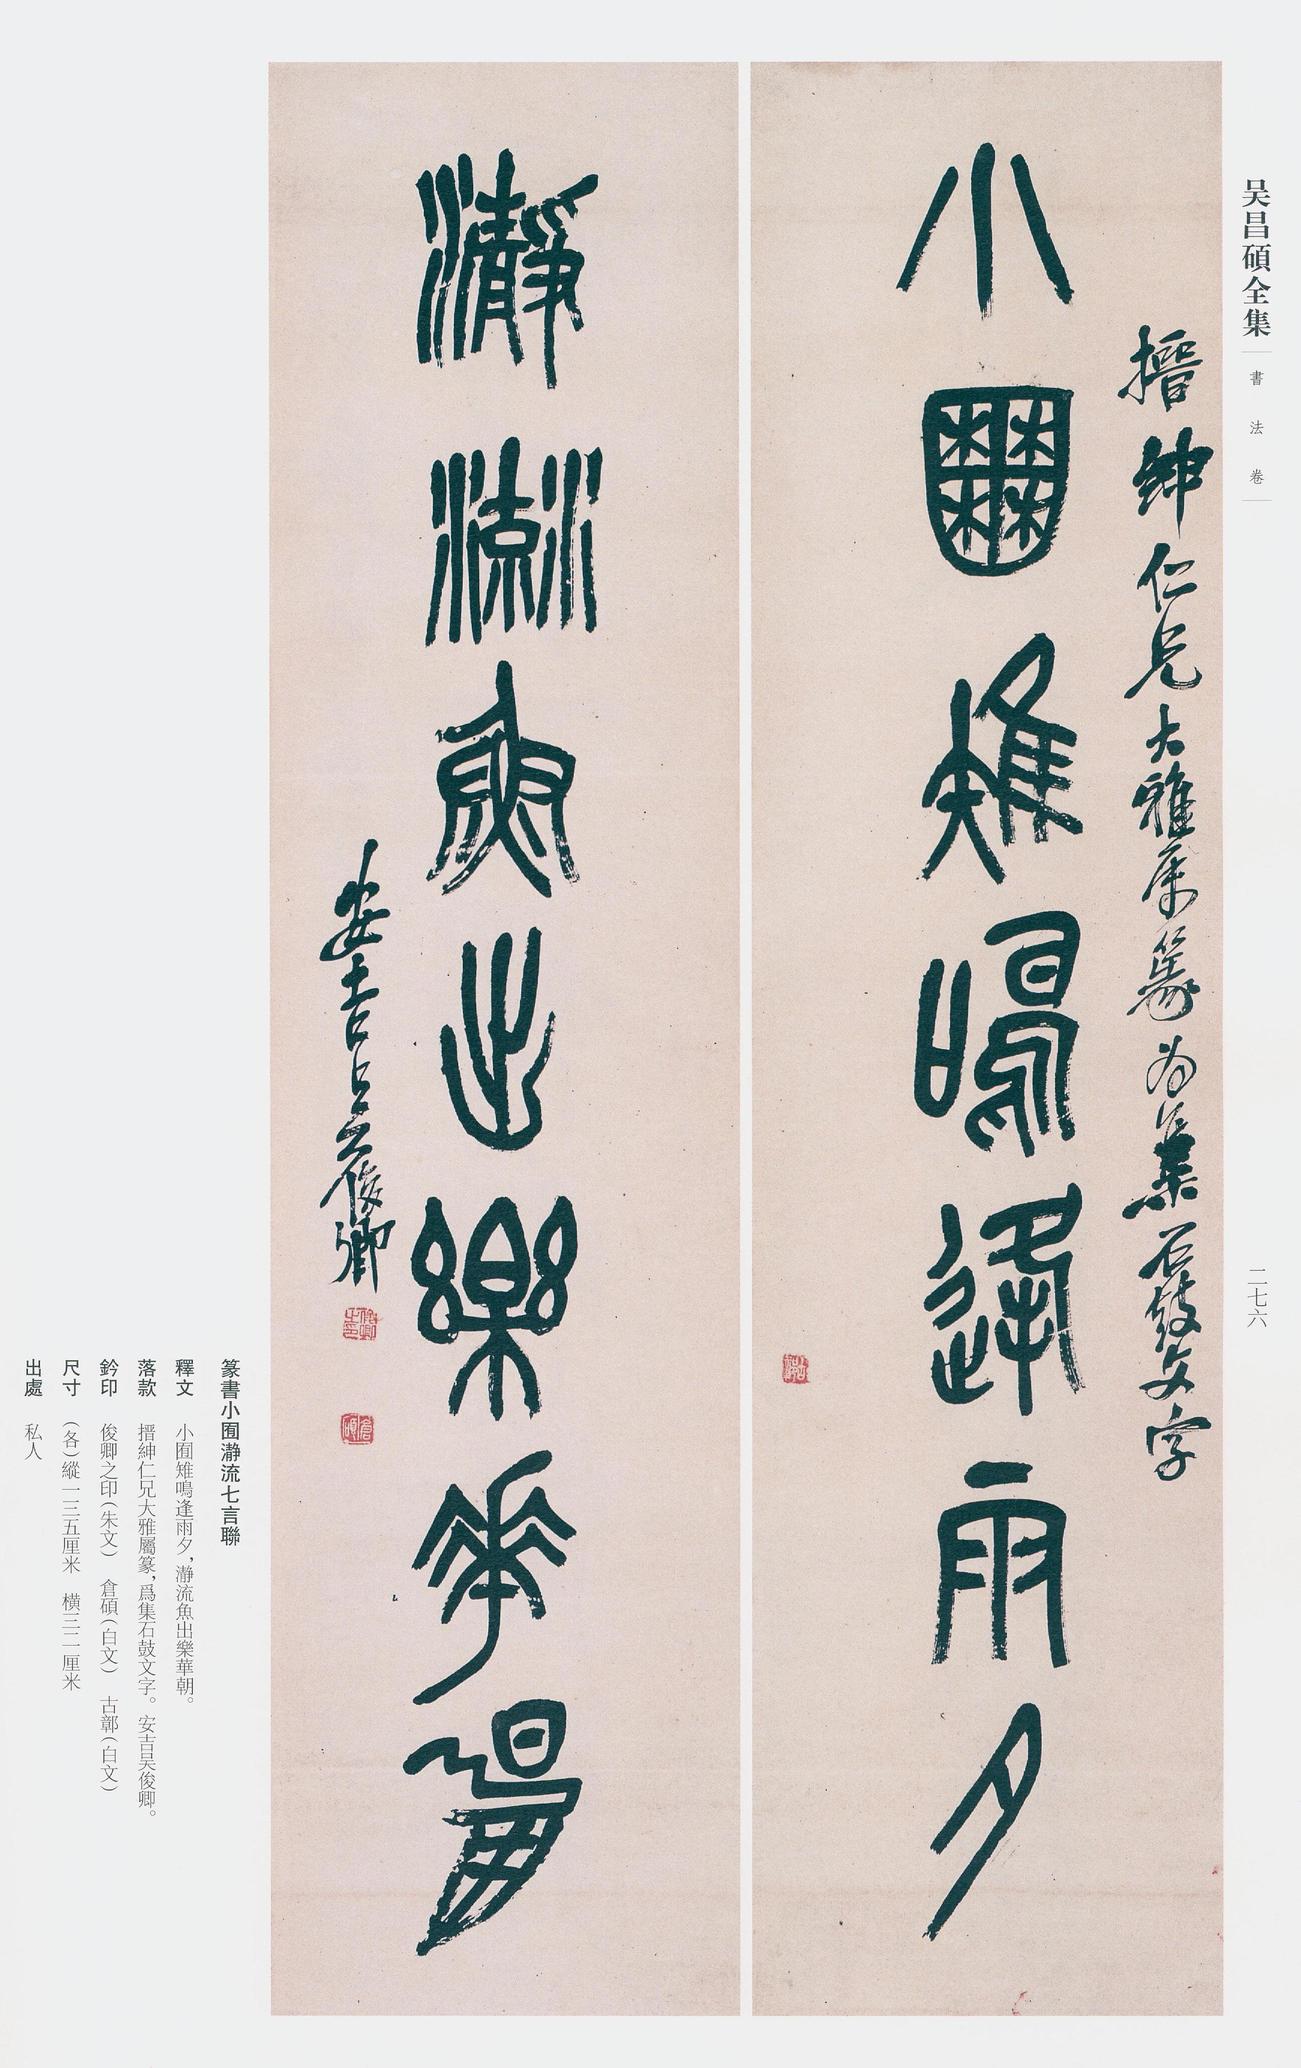 吴昌碩全集
書法卷
二七六
搢紳仁兄大雅属篆為集石鼓文字
小囿雉鳴逢雨夕
瀞流魚出樂華朝
安吉吴俊卿
俊卿之印
倉碩
古鄣
篆書小囿瀞流七言聯
釋文 小囿雉鳴逢雨夕,瀞流魚出樂華朝。
落款 搢紳仁兄大雅屬篆,爲集石鼓文字。安吉吴俊卿。
鈐印 俊卿之印(朱文) 倉碩(白文) 古鄣(白文)
尺寸 (各)縱一三五厘米 橫三二厘米
出處 私人